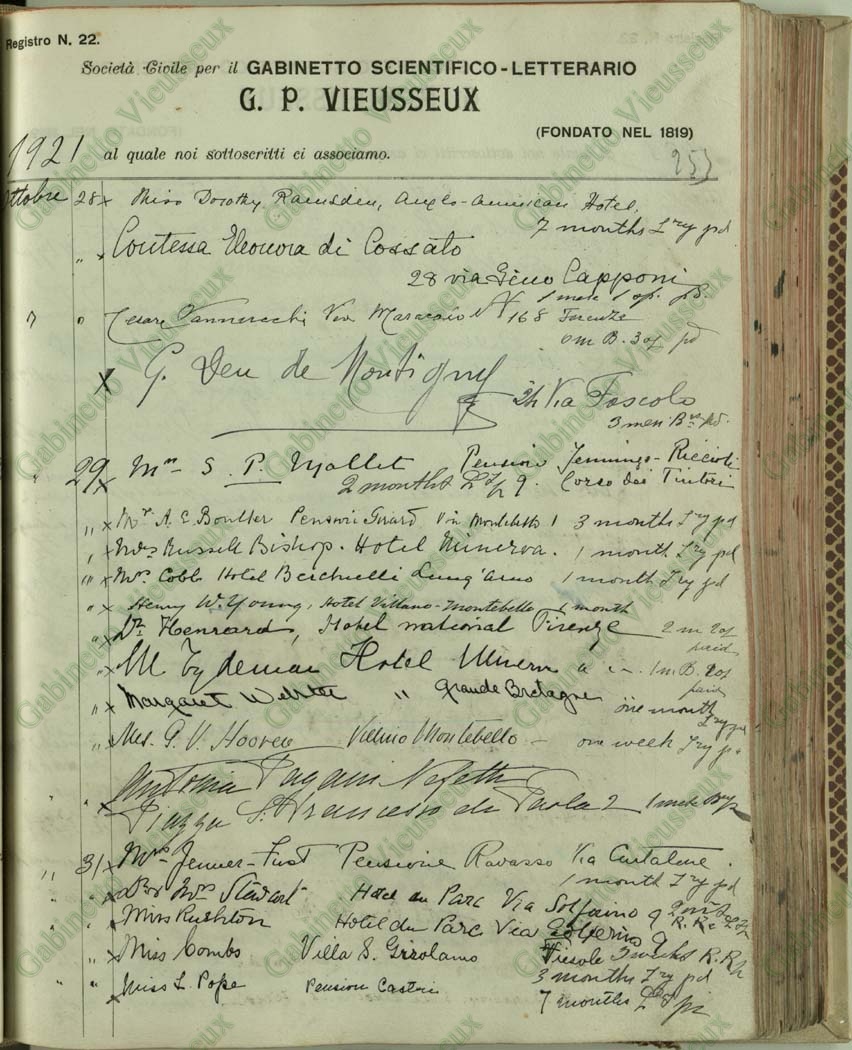 Registro N. 22.
Società Civile per il GABINETTO SCIENTIFICO-LETTERARIO
G. P. VIEUSSEUX
(FONDATO NEL 1819)
1921 al quale noi sottoscritti ci associamo.
253
Ottobre 28 x Miss Dorothy Ramsden, Anglo-American Hotel,
7 months L'ry pd
" x Contessa Eleonora di Cossato
28 via Gino Capponi
1 mese 1 op. pd.
" " Cesare Vannerecchi Via 168 Firenze
om B. 3 of pd
x G. Deu de Montigny
24 Via Foscolo
3 mesi pd.
" 29 x S. P. Mallet Pension Jennings-Riccioli
2 months Corso dei Tintori
" x Mr A. E. Boulter Pension Girard Via Montebello 1 3 months L'ry pd
" x Mrs Russell Bishop. Hotel Minerva. 1 month L'ry pd
" x Mrs Cobb Hotel Berchielli Lung'arno 1 month L'ry pd
" x Henry W. Young, Hotel Villino-Montebello 1 month
" x Dr. Henrard, Hotel national Firenze 2 m 2 of
paid
" x Hotel Minerva 1 m B. 2 of
paid
" x Margaret " Grande Bretagne one month
L'ry pd
" x Mrs. P. V. Hoover Villino Montebello - one week L'ry pd
" x Antonia Pagani Nefetti
Piazza S. Francesco di Paola 2 1 mese
" 31 x Mrs Jenner-Fust Pensione Ravasso Via Curtatone.
1 month L'ry pd
" x Mrs Stewart Hotel du Parc Via Solferino 9
" x Miss Rushton Hotel du Parc Via Solferino 9
" x Miss Combs Villa S. Girolamo Fiesole
3 months L'ry pd
" " x Miss L. Pope Pension Castri
7 months